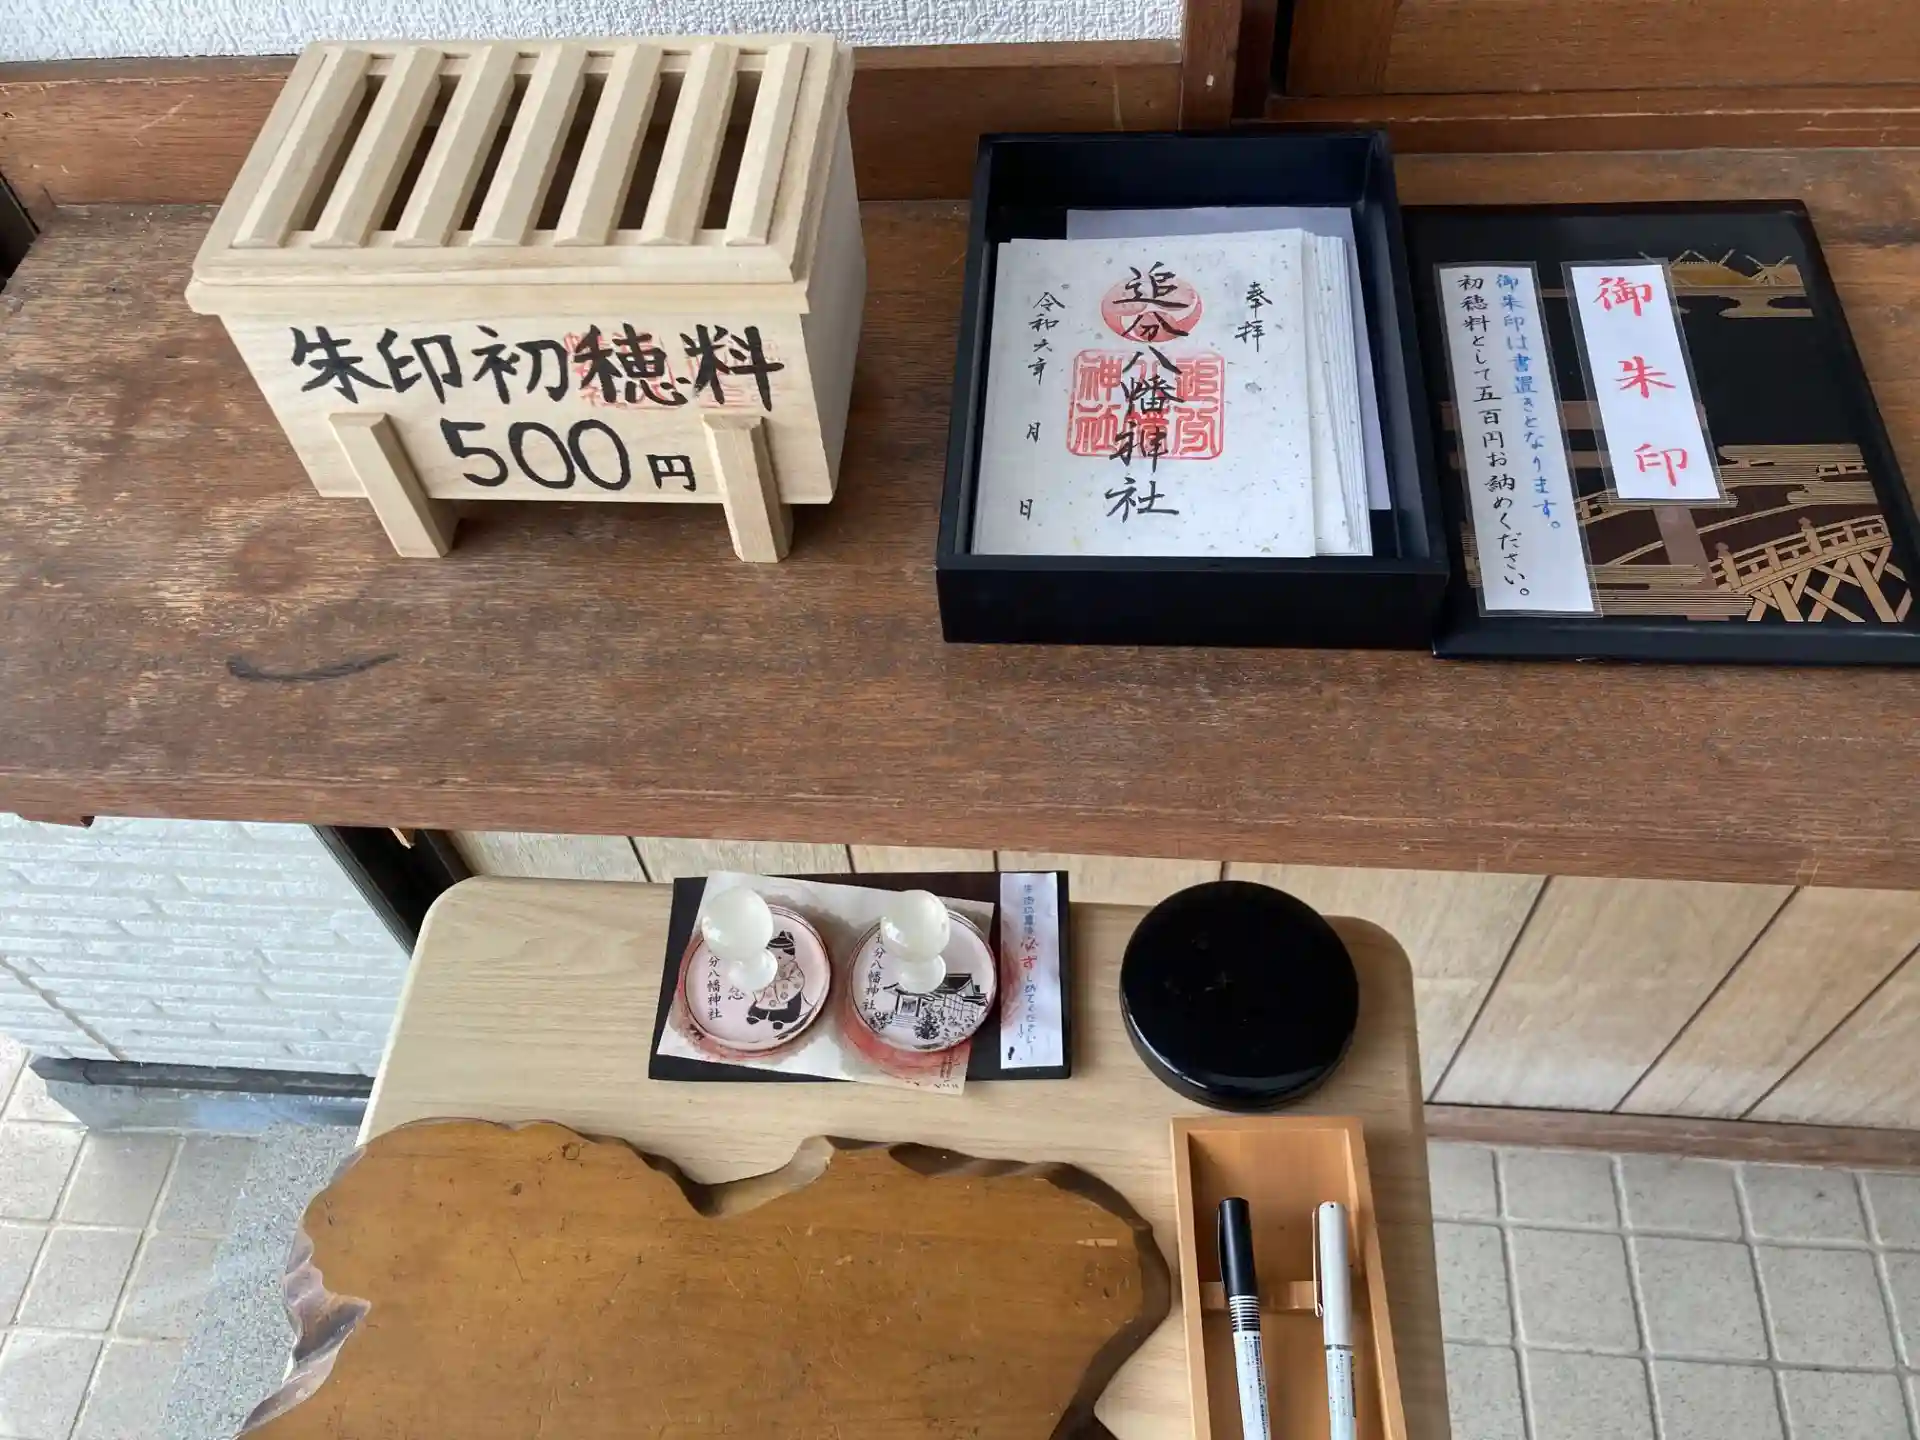 朱印初穂料
500円
奉拝
追分八幡神社
追分八幡神社
令和六年 月 日
御朱印
御朱印は書置きとなります。
初穂料として五百円お納めください。
分八幡神社
追分八幡神社
必ず